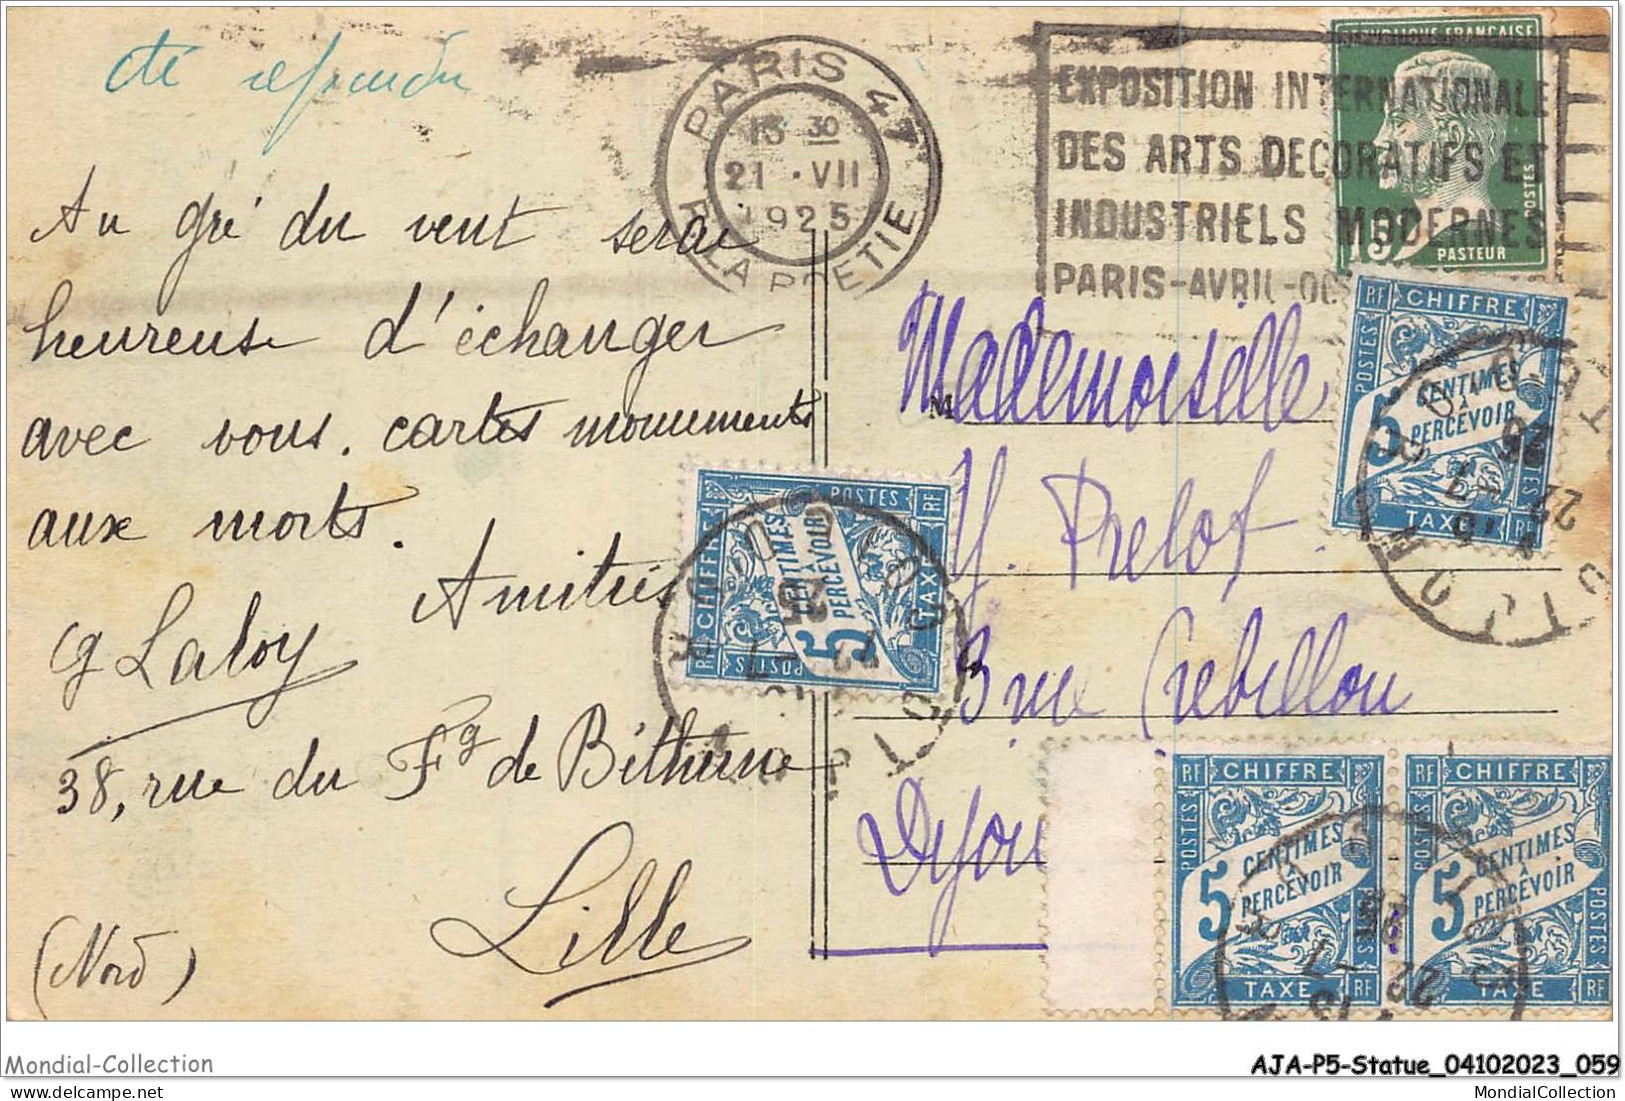 été répondu
Au gré du vent serai
heureuse d'échanger
avec vous. cartes monuments
aux morts.
Amitiés
G Laloy
38, rue du Fg de Béthune
Lille
(Nord)
PARIS 47
13 30
21 • VII
1925
R. LA BOETIE
EXPOSITION INTERNATIONALE
DES ARTS DECORATIFS ET
INDUSTRIELS MODERNES
PARIS-AVRIL-OC
REPUBLIQUE FRANÇAISE
POSTES
15
PASTEUR
M
Mademoiselle
Y. Prelot
3 rue Crebillon
Dijon
RF CHIFFRE
POSTES
5 CENTIMES
A
PERCEVOIR
TAXE
POSTES RF
CHIFFRE
5 CENTIMES
A
PERCEVOIR
TAXE
RF POSTES
25
RF CHIFFRE
POSTES
5 CENTIMES
A
PERCEVOIR
POSTES
TAXE RF
RF CHIFFRE
POSTES
5 CENTIMES
A
PERCEVOIR
POSTES
TAXE RF
Mondial-Collection
AJA-P5-Statue_04102023_059
MondialCollection